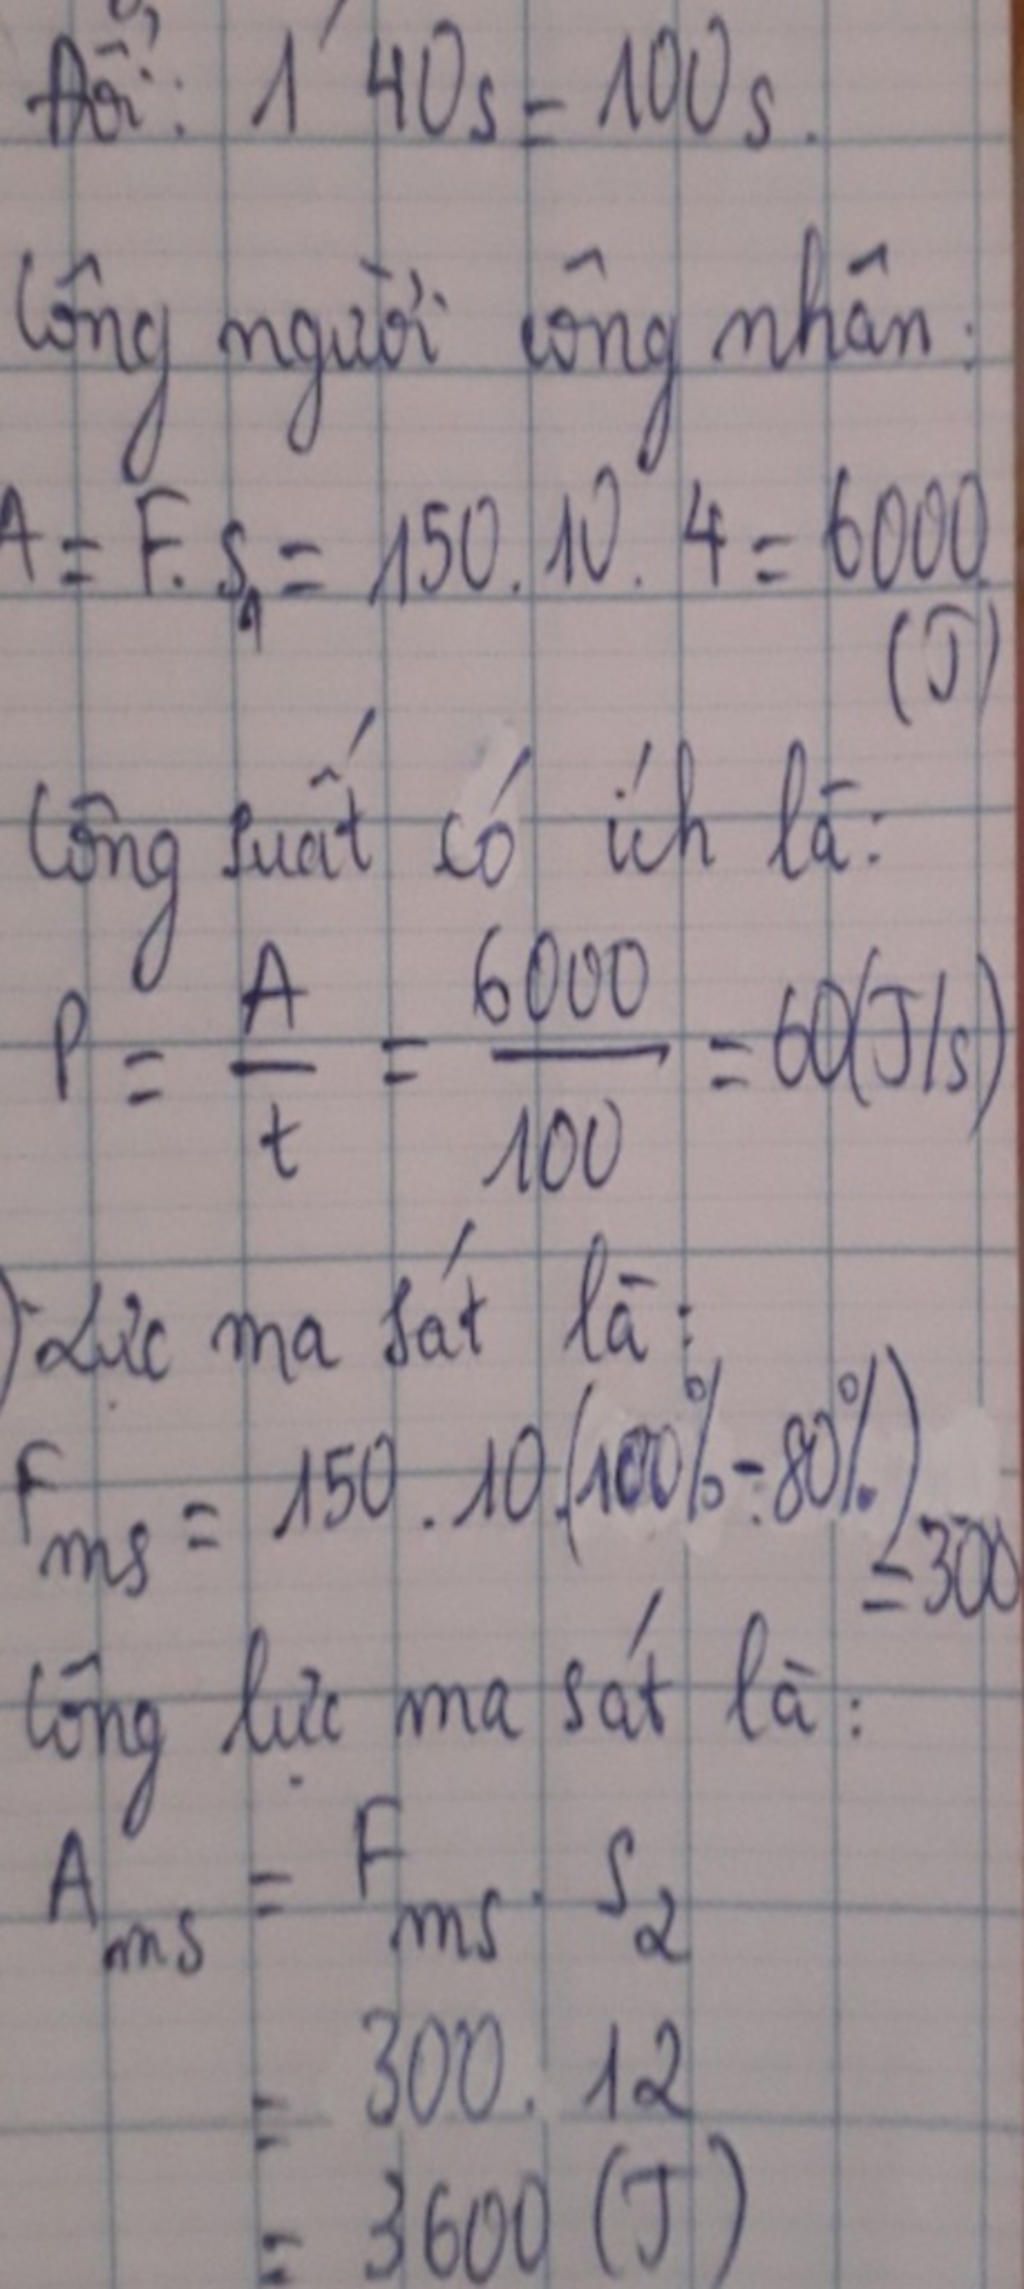 Đổi: 1' 40s = 100s.
Công người công nhân:
A = F. S₁ = 150. 10. 4 = 6000
(J)
Công suất có ích là:
P = A/t = 6000/100 = 60(J/s)
) Lực ma sát là:
Fms = 150. 10.(100% - 80%)
= 300
Công lực ma sát là:
Ams = Fms. S₂
= 300. 12
= 3600 (J)